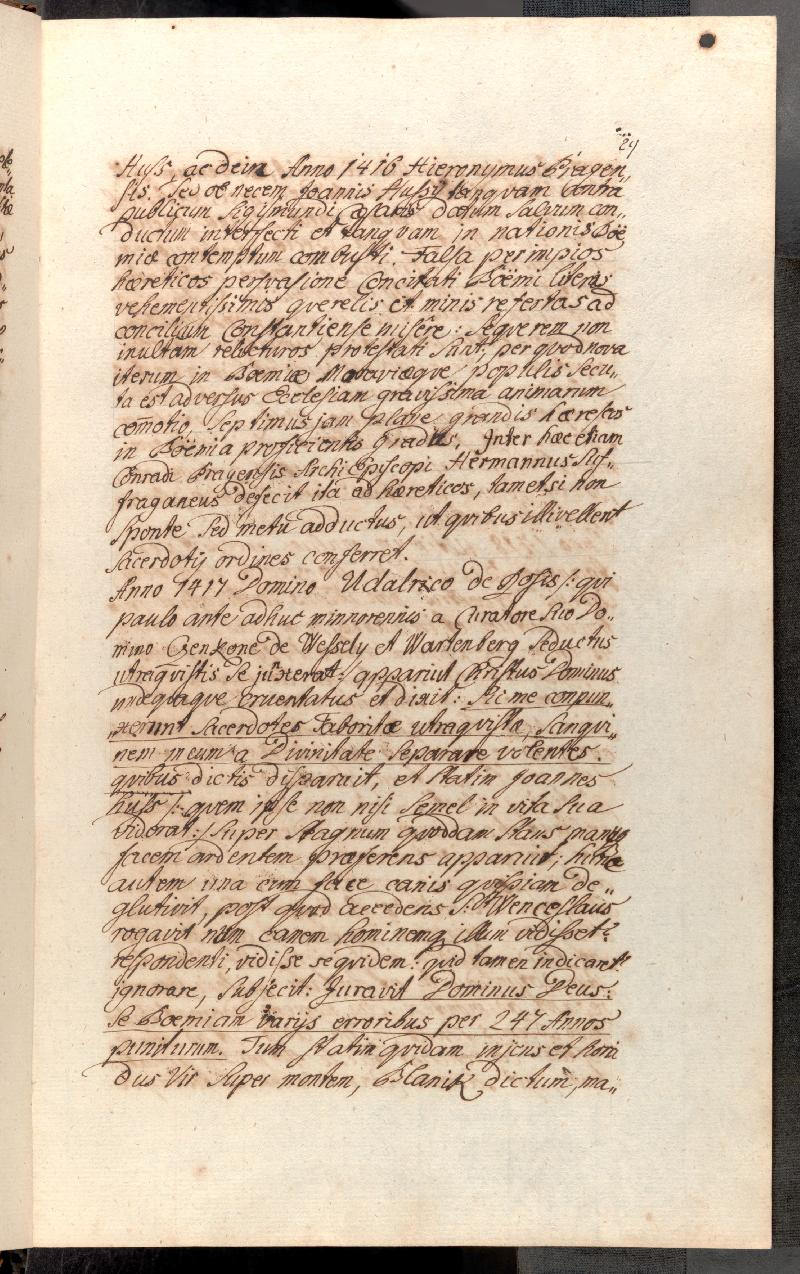 29
Huss, ac dein Anno 1416 Hieronymus Pragen„
sis. Sed ob necem Joannis Hussy tanqvam contra
publicum Sigismundi Cæsaris datum salvum con„
ductum interfecti et tanqvam in nationis Boë
miæ contemptum combusti. Falsa per impios
hæreticos persvasione concitati Boëmi literas
vehementissimis qverelis et minis refertas ad
concilium Constantiense misêre: se qve rem non
inultam relicturos protestati sunt, per qvod nova
iterum in Boemiæ Moraviæqve populis secu„
ta est adversus Ecclesiam gravissima animarum
com̄otio, septimus jam plane grandis hæresios
in Boëmia proficientis gradus, Inter hæc etiam
Conradi Pragensis ArchiEpiscopi Hermannus Suf„
fraganeus defecit ita ad hæreticos, tametsi non
sponte sed metu adductus, ut qvibus illi vellent
sacerdotij ordines conferret.
Anno 1417 Domino Udalrico de Rosis /: qvi
paulo ante adhuc minnorennis a Curatore suo Do„
mino Czenkone de Wessely et Wartenberg seductus
utraqvistis se :/ apparuit Christus Dominus
undeqvaqve cruentatus et dixit: Sic me conpun„
„xerunt Sacerdotes Taboritæ utraqvistæ, Sangvi„
nem meum a Divinitate separare volentes.
qvibus dictis disparuit, et statim Joannes
huss /: qvem ipse non nisi semel in vita sua
viderat :/ super stagnum qvoddam stans manu
facem ardentem præferens apparuit, hunc
autem una cum face canis qvispian de„
glutivit, post qvod accedens S: Wenceslaus
rogavit num canem hominemq illum vidisset?
respondenti, vidisse seqvidem: qvid tamen indicaret
ignorare, subjecit: Juravit Dominus Deus:
se Boemiam varijs erroribus per 247 Annos
puniturum. Tum statim qvidam et horri
dus vir super montem, Blanik dictum, ma„